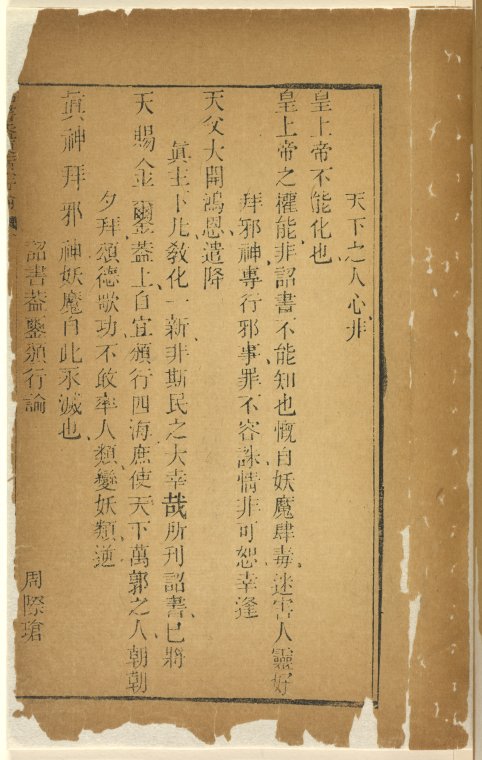 天下之人心非
皇上帝不能化也
皇上帝之權能非詔書不能知也慨自妖魔肆毒迷害人靈好
拜邪神專行邪事罪不容誅情非可恕幸逢
天父大開鴻恩遣降
眞主下凡敎化一新非斯民之大幸哉所刊詔書已將
天賜金璽蓋上自宜頒行四海庶使天下萬郭之人朝朝
夕拜頌德歌功不敢率人類變妖類逆
眞神拜邪神妖魔自此永滅也
詔書蓋璽頒行論
周際瑲